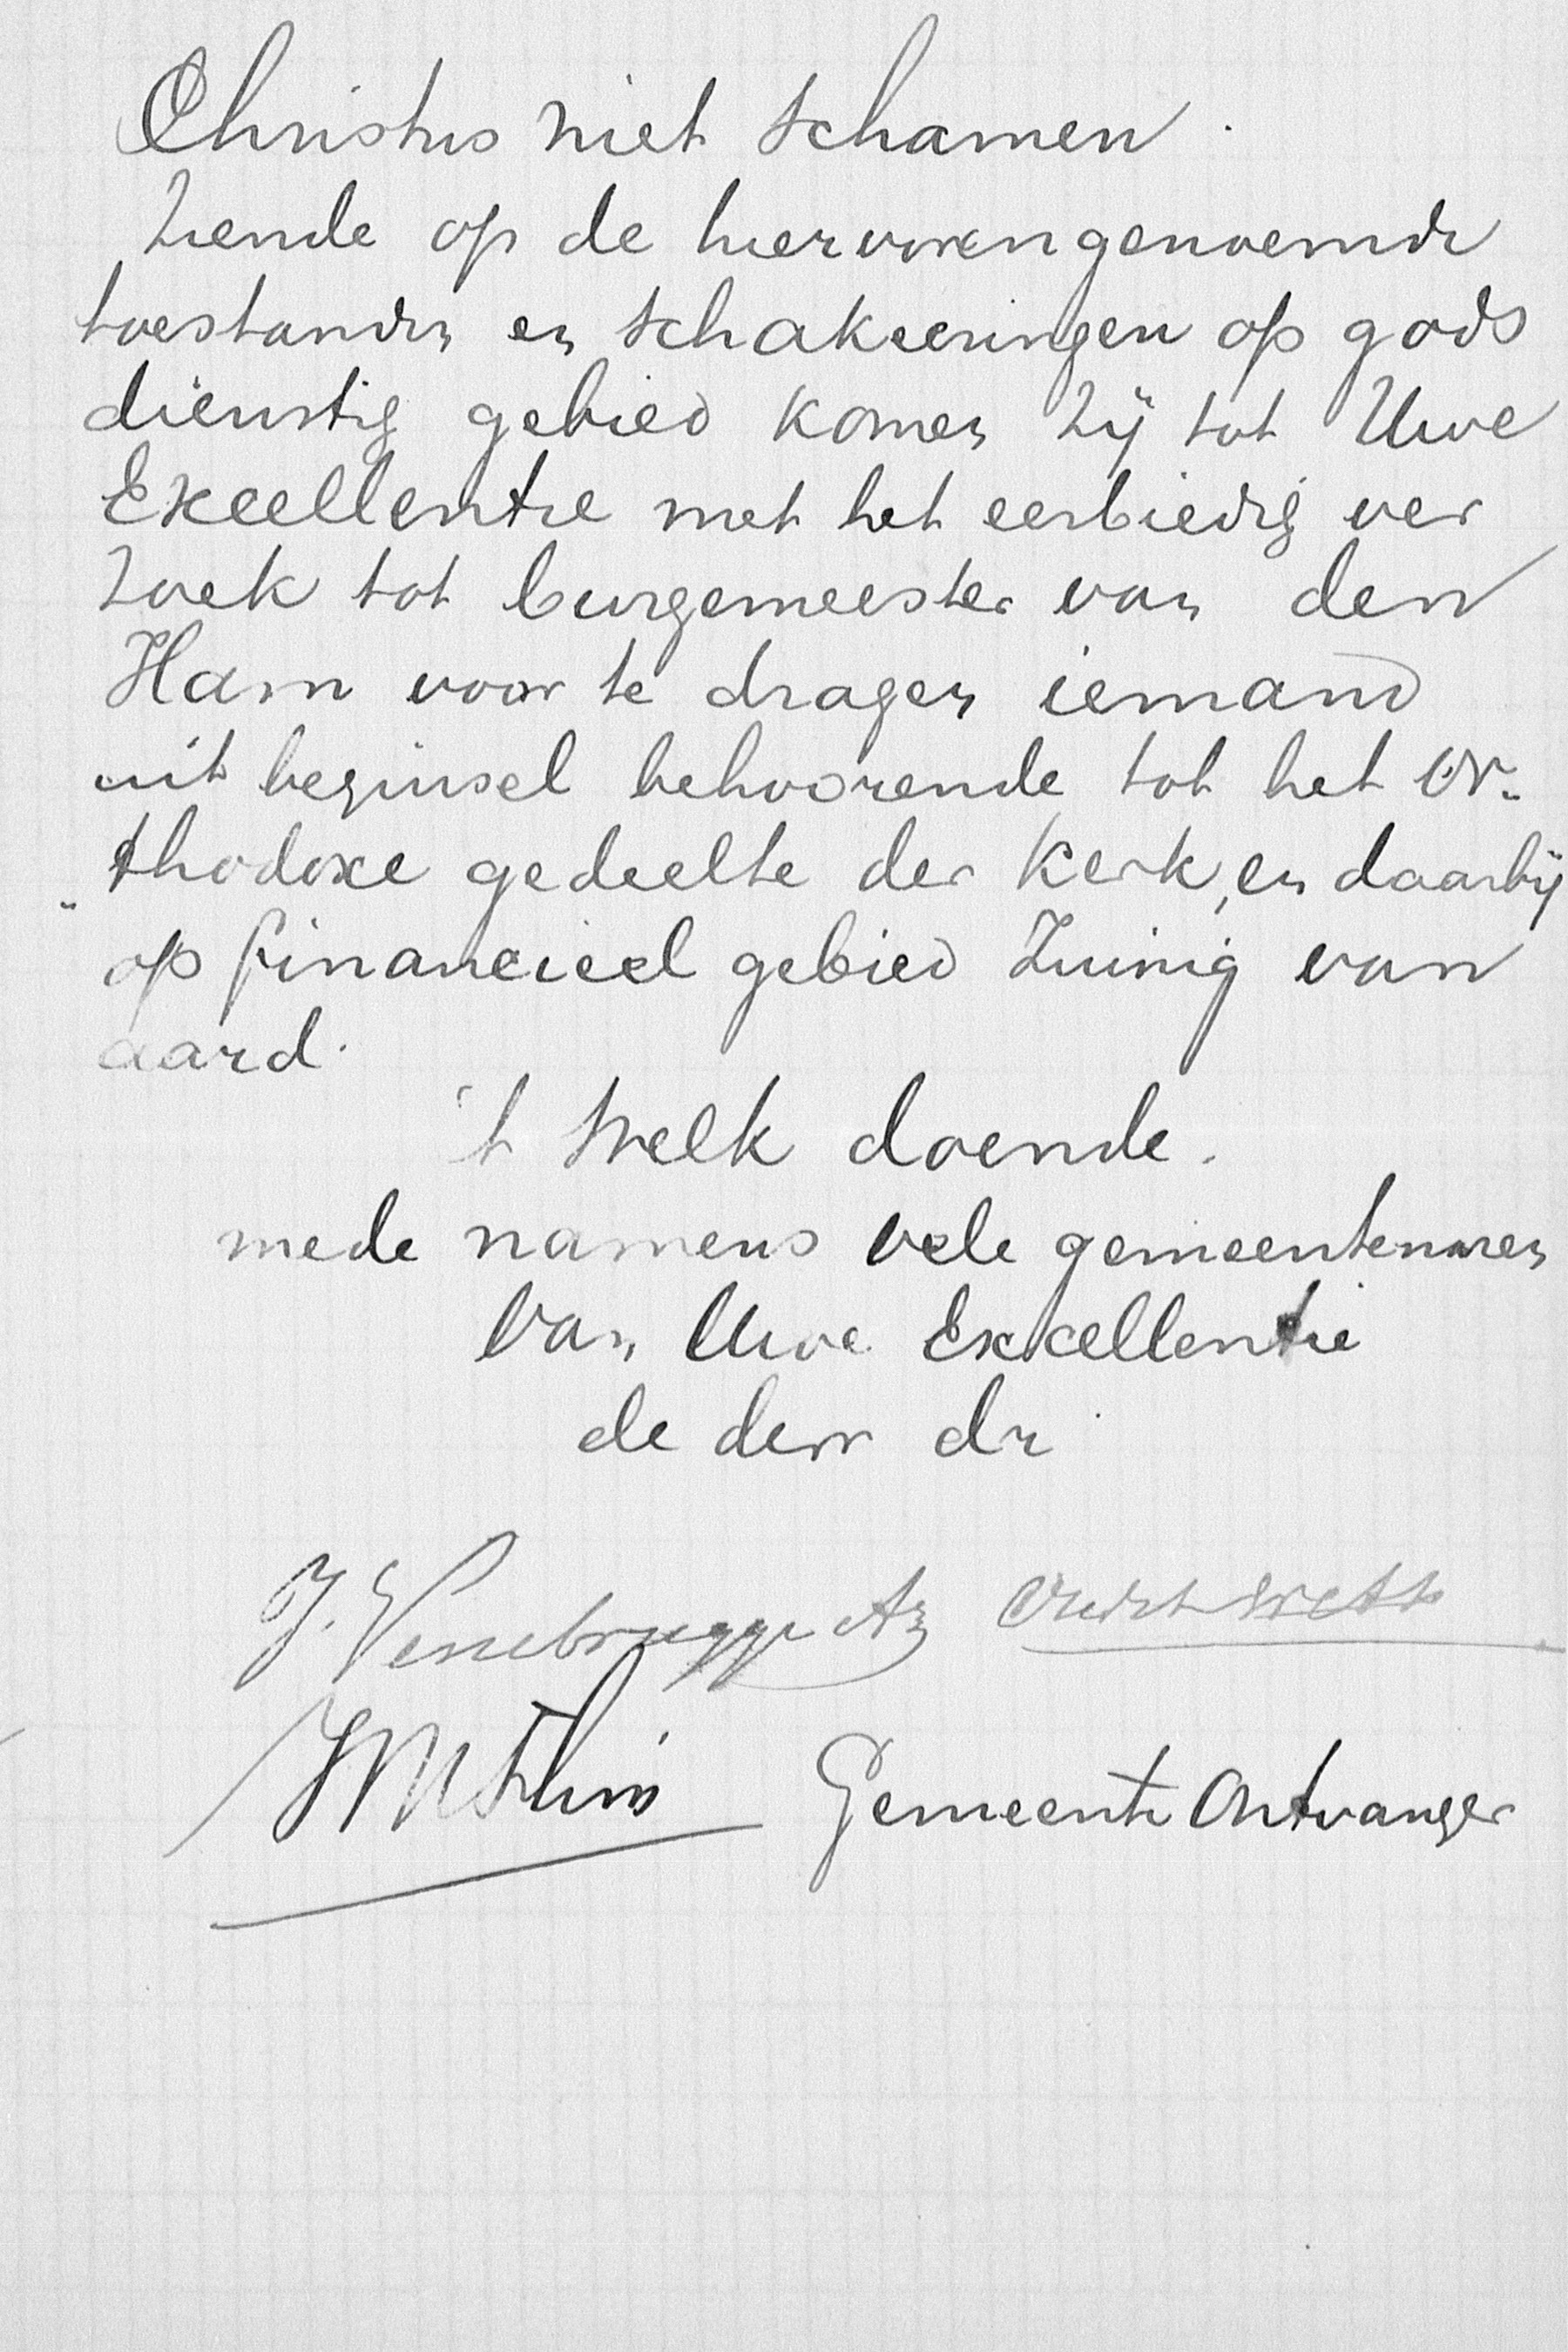 Christus niet schamen.
Ziende op de hiervorengenoemde
toestanden en schakeeringen op gods
dienstig gebied komen zij tot Uwe
Excellentie met het eerbiedig ver
zoek tot burgemeester van den
Ham voor te dragen iemand
uit beginsel behoorende tot het or-
"thodoxe gedeelte der Kerk, en daarbij
op financieel gebied Zuinig van
aard.
't Welk doende.
mede namens vele gemeentenaren
Van Uwe Excellentie
de dem dr
J. Vennebrugge Az
Gemeente Ontvanger